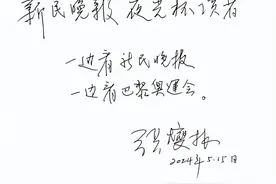 新民晚报 夜光杯读者
一边看新民晚报
一边看巴黎奥运会。
张燮林
2024年5.15日